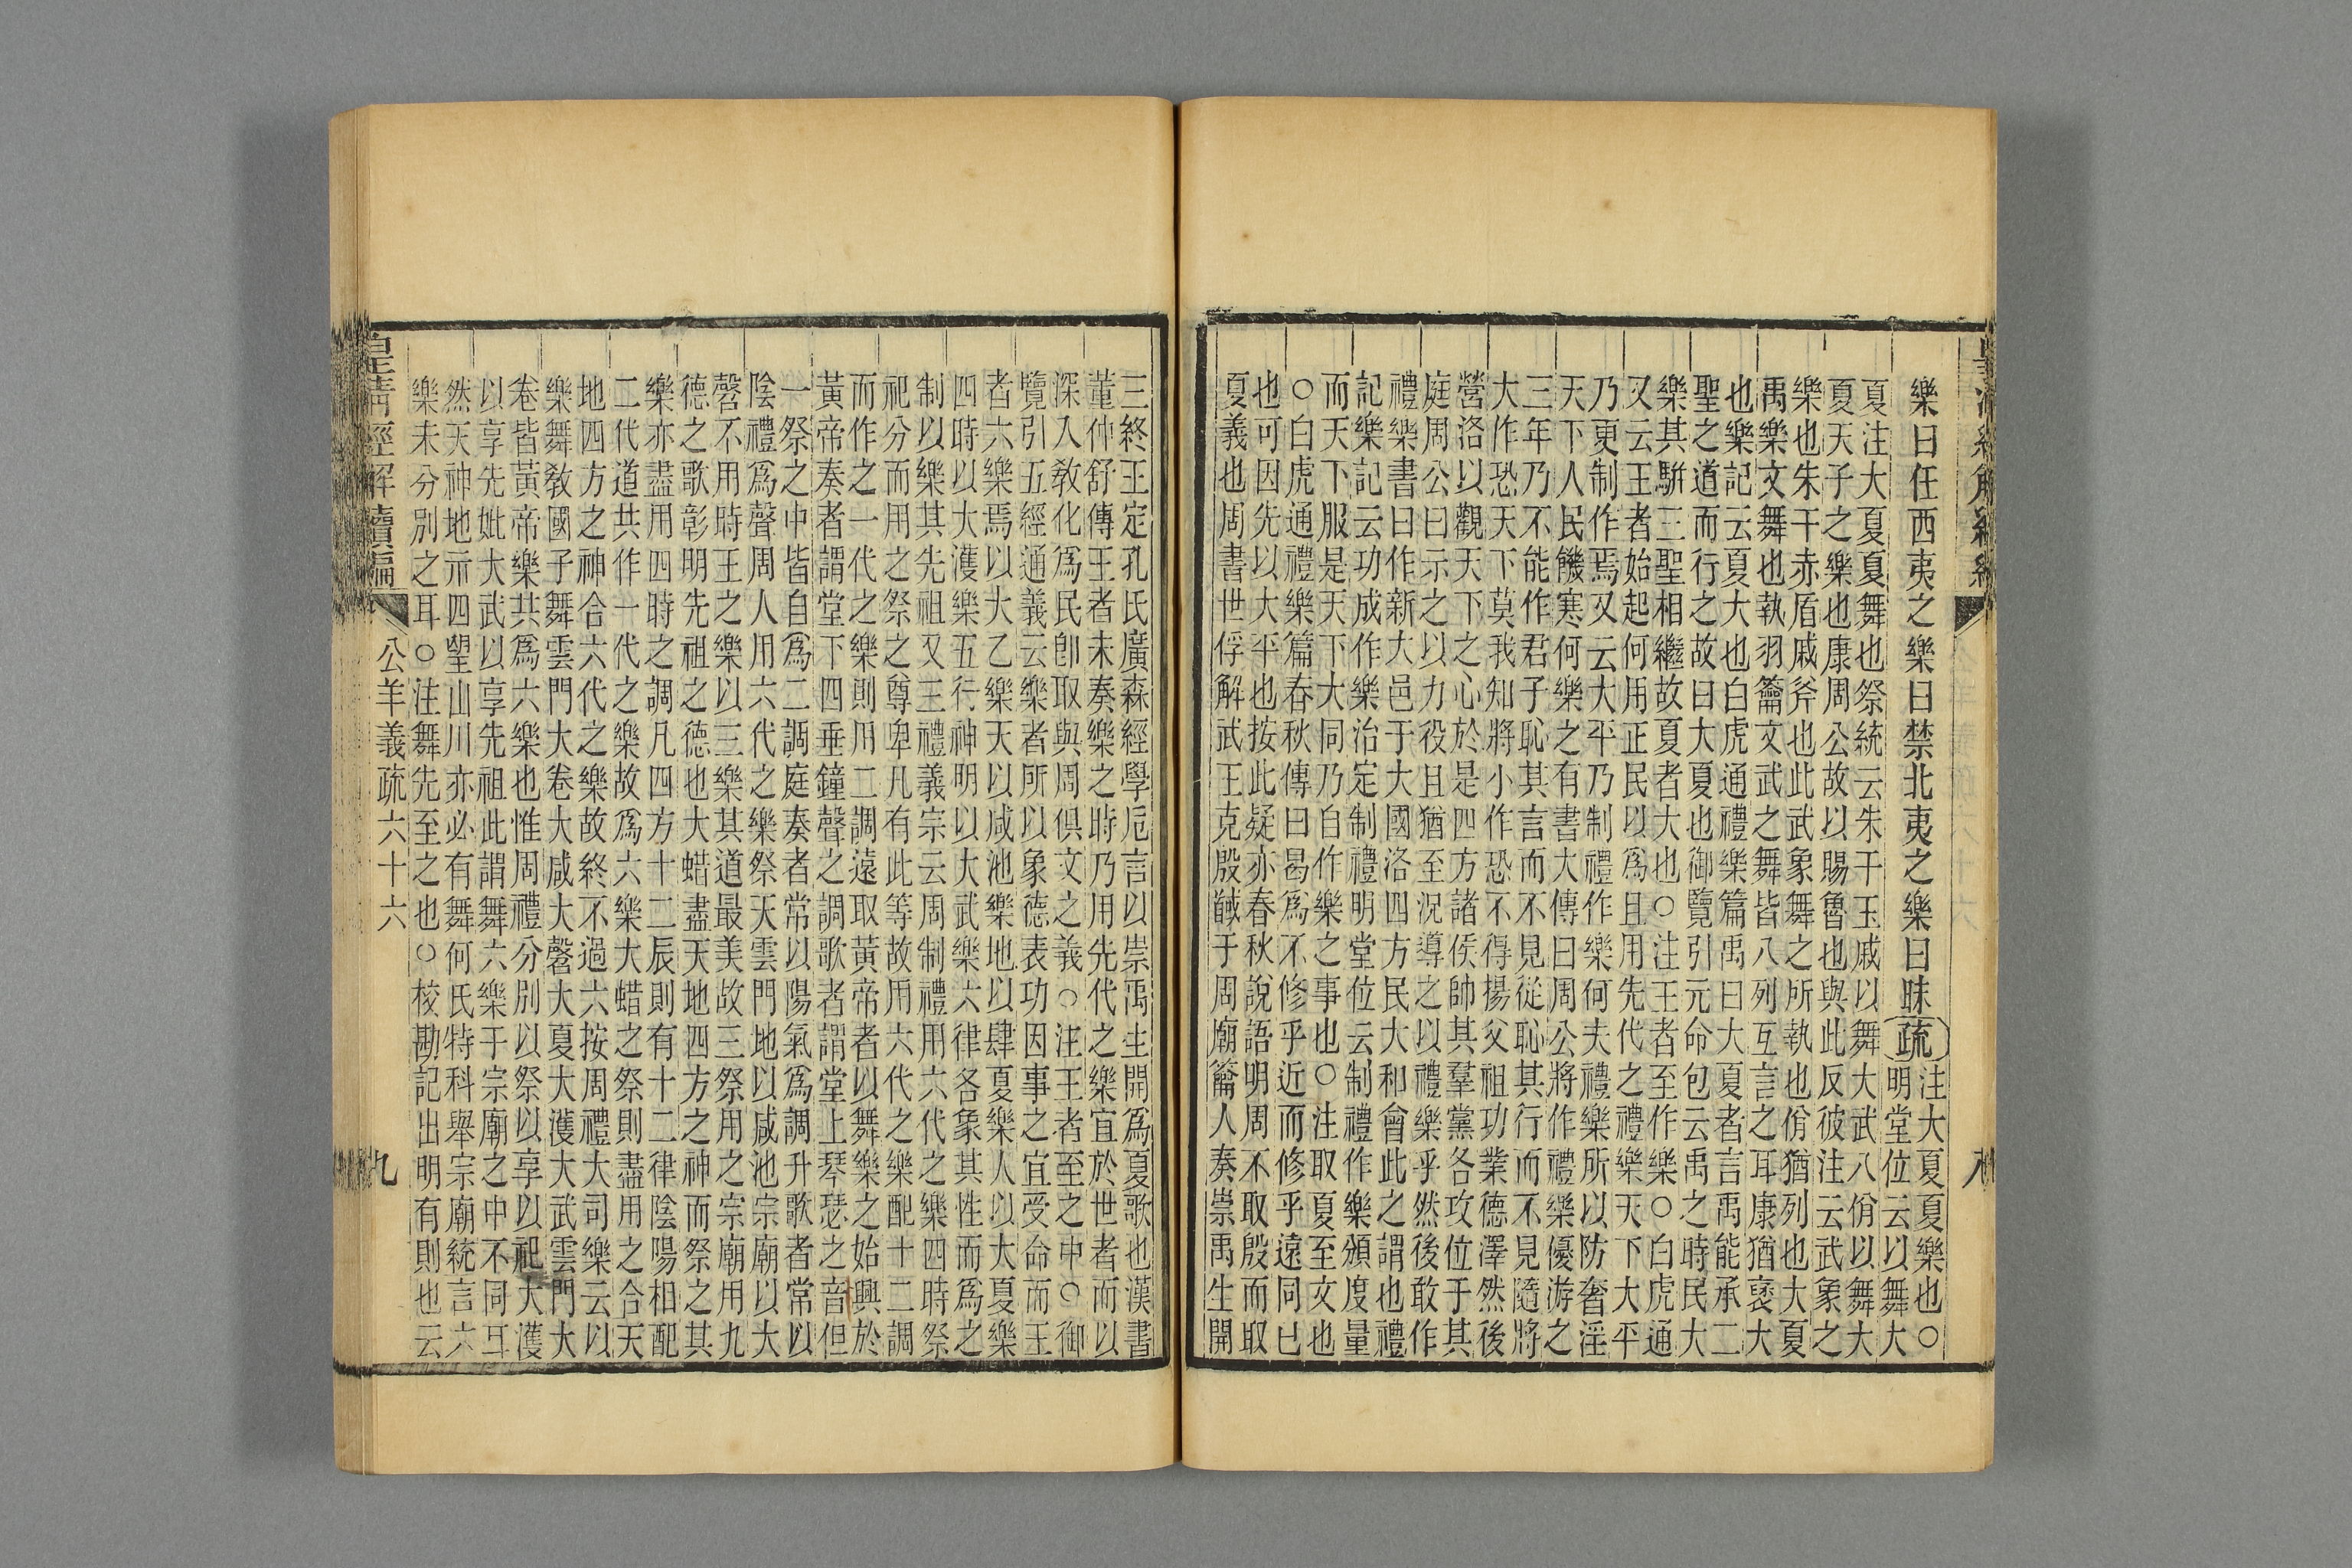 樂曰任西夷之樂曰禁北夷之樂曰昧疏注大夏夏樂也○
明堂位云以舞大
夏注大夏夏舞也祭統云朱干玉戚以舞大武八佾以舞大
夏天子之樂也康周公故以賜魯也與此反彼注云武象之
樂也朱干赤盾戚斧也此武象舞之所執也佾猶列也大夏
禹樂文舞也執羽籥文武之舞皆八列互言之耳康猶襃大
也樂記云夏大也白虎通禮樂篇禹曰大夏者言禹能承二
聖之道而行之故曰大夏也御覽引元命包云禹之時民大
樂其駢三聖相繼故夏者大也○注王者至作樂○白虎通
又云王者始起何用正民以爲且用先代之禮樂天下大平
乃更制作焉又云大平乃制禮作樂何夫禮樂所以防奢淫
天下人民饑寒何樂之有書大傳曰周公將作禮樂優游之
三年乃不能作君子恥其言而不見從恥其行而不見隨將
大作恐天下莫我知將小作恐不得揚父祖功業德澤然後
營洛以觀天下之心於是四方諸侯帥其羣黨各攻位于其
庭周公曰示之以力役且猶至況導之以禮樂乎然後敢作
禮樂書曰作新大邑于大國洛四方民大和會此之謂也禮
記樂記云功成作樂治定制禮明堂位云制禮作樂頒度量
而天下服是天下大同乃自作樂之事也○注取夏至文也
○白虎通禮樂篇春秋傳曰曷爲不修乎近而修乎遠同已
也可因先以大平也按此疑亦春秋說語明周不取殷而取
夏義也周書世俘解武王克殷馘于周廟籥人奏崇禹生開
三終王定孔氏廣森經學卮言以崇禹生開爲夏歌也漢書
董仲舒傳王者未奏樂之時乃用先代之樂宜於世者而以
深入敎化爲民卽取與周俱文之義○注王者至之中○御
覽引五經通義云樂者所以象德表功因事之宜受命而王
者六樂焉以大乙樂天以咸池樂地以肆夏樂人以大夏樂
四時以大濩樂五行神明以大武樂六律各象其性而爲之
制以樂其先祖又三禮義宗云周制禮用六代之樂四時祭
祀分而用之祭之尊卑凡有此等故用六代之樂配十二調
而作之一代之樂則用二調遠取黃帝者以舞樂之始興於
黃帝奏者謂堂下四垂鐘聲之調歌者謂堂上琴瑟之音但
一祭之中皆自爲二調庭奏者常以陽氣爲調升歌者常以
陰禮爲聲周人用六代之樂祭天雲門地以咸池宗廟以大
磬不用時王之樂以三樂其道最美故三祭用之宗廟用九
德之歌彰明先祖之德也大蜡盡天地四方之神而祭之其
樂亦盡用四時之調凡四方十二辰則有十二律陰陽相配
二代道共作一代之樂故爲六樂大蜡之祭則盡用之合天
地四方之神合六代之樂故終不過六按周禮大司樂云以
樂舞敎國子舞雲門大卷大咸大磬大夏大濩大武雲門大
卷皆黃帝樂共爲六樂也惟周禮分別以祭以享以祀大濩
以享先妣大武以享先祖此謂舞六樂于宗廟之中不同耳
然天神地示四望山川亦必有舞何氏特科舉宗廟統言六
樂未分別之耳○注舞先至之也○校勘記出明有則也云
皇清經解續編
公羊義疏六十六
九